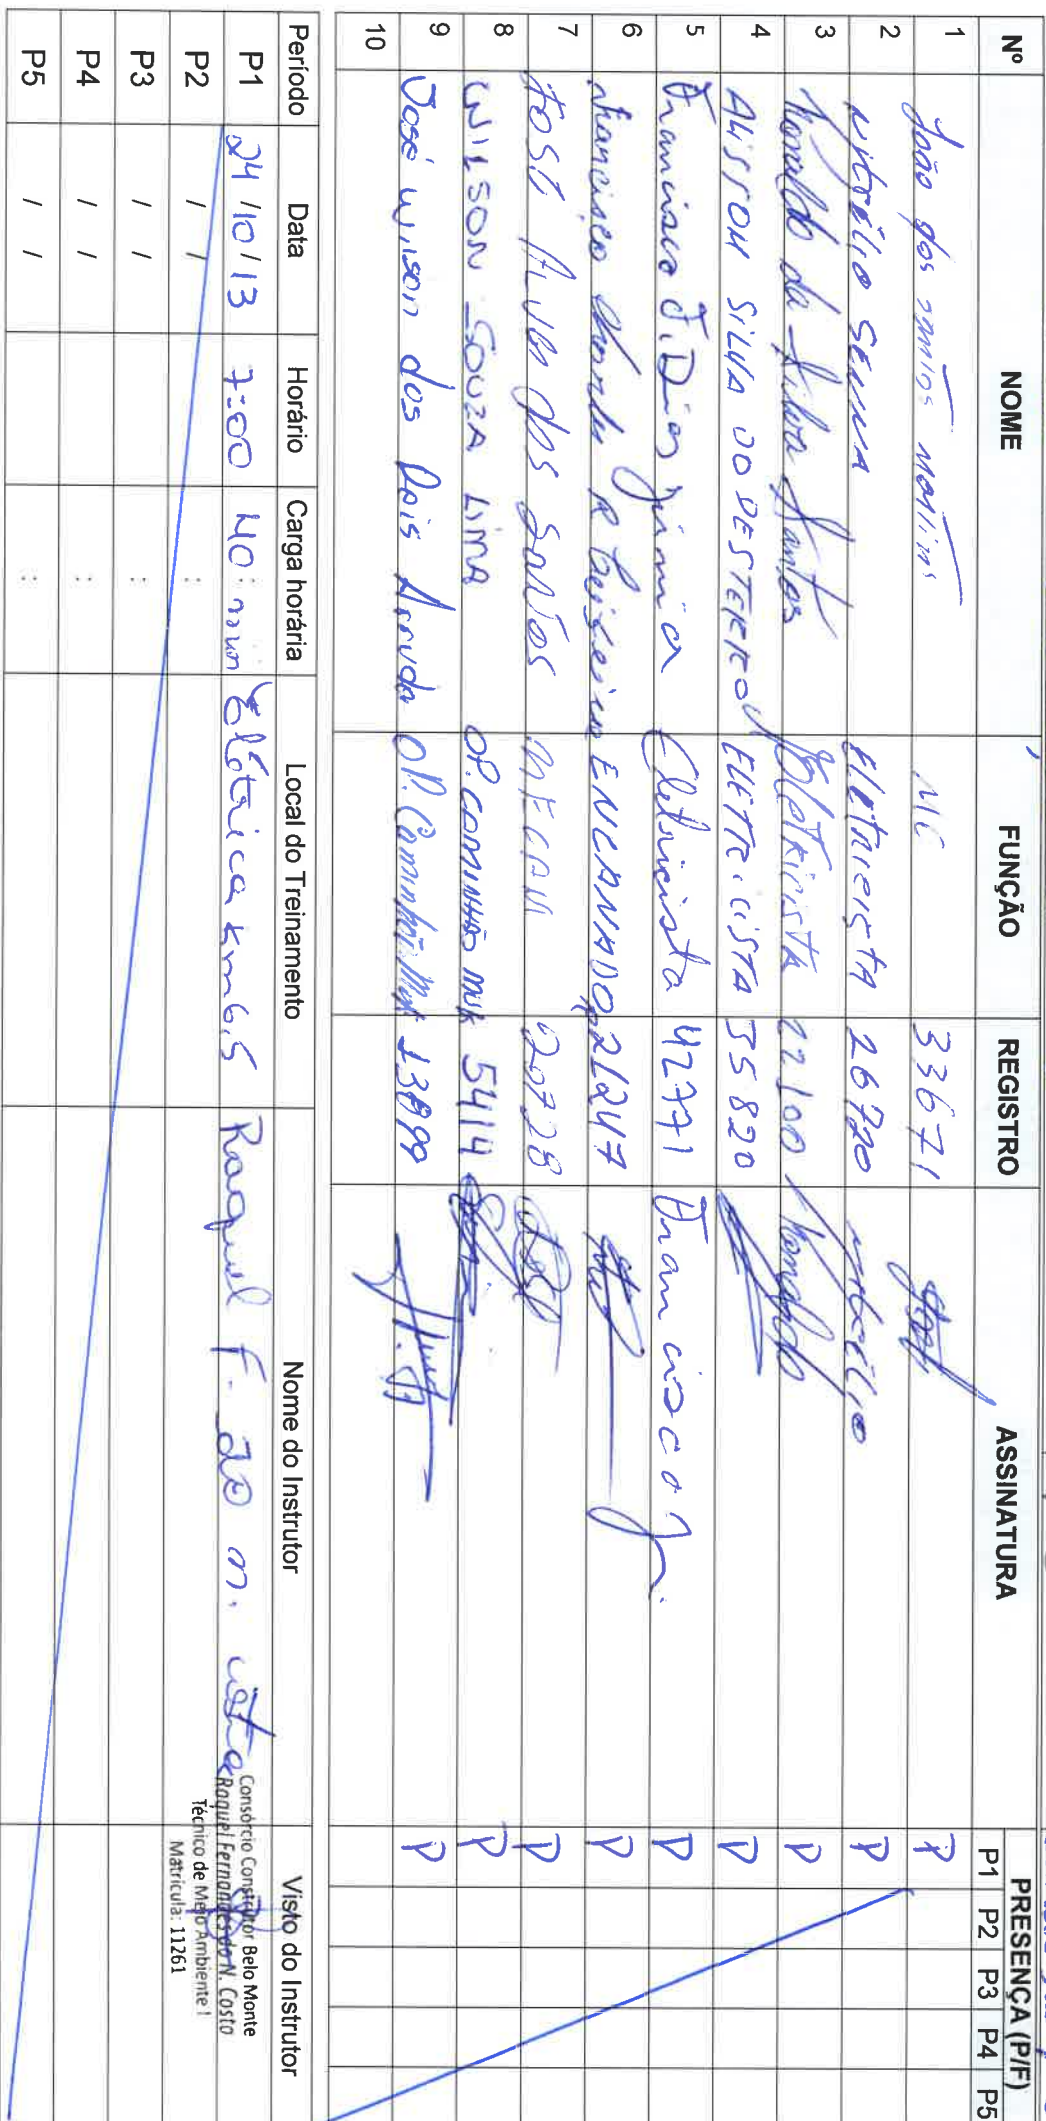 Nº NOME FUNÇÃO REGISTRO ASSINATURA PRESENÇA (P/F)
P1 P2 P3 P4 P5
1 João dos santos martins 33671 P
2 SENNA Eletricista 26720 P
3 Ronaldo da Silva Santos Eletricista 22100 Ronaldo P
4 ALISSON SILVA DO DESTERRO ELETRICISTA 35820 P
5 Francisco J. Dias Eletricista 42771 Francisco J. P
6 Francisco ENCANADOR 21247 P
7 José Alves dos Santos 20728 P
8 WILSON SOUZA LIMA OP. CAMINHÃO MUK 5414 P
9 José wilson dos Reis Arruda OP. Caminhão Muk P
10
Período Data Horário Carga horária Local do Treinamento Nome do Instrutor Visto do Instrutor
P1 24/10/13 7:00 40:min Elétrica km6,5 Raquel F. do N. Costa
Consórcio Construtor Belo Monte
Raquel Fernandes do N. Costa
Técnico de Meio Ambiente I
Matrícula: 11261
P2 / / :
P3 / / :
P4 / / :
P5 / / :